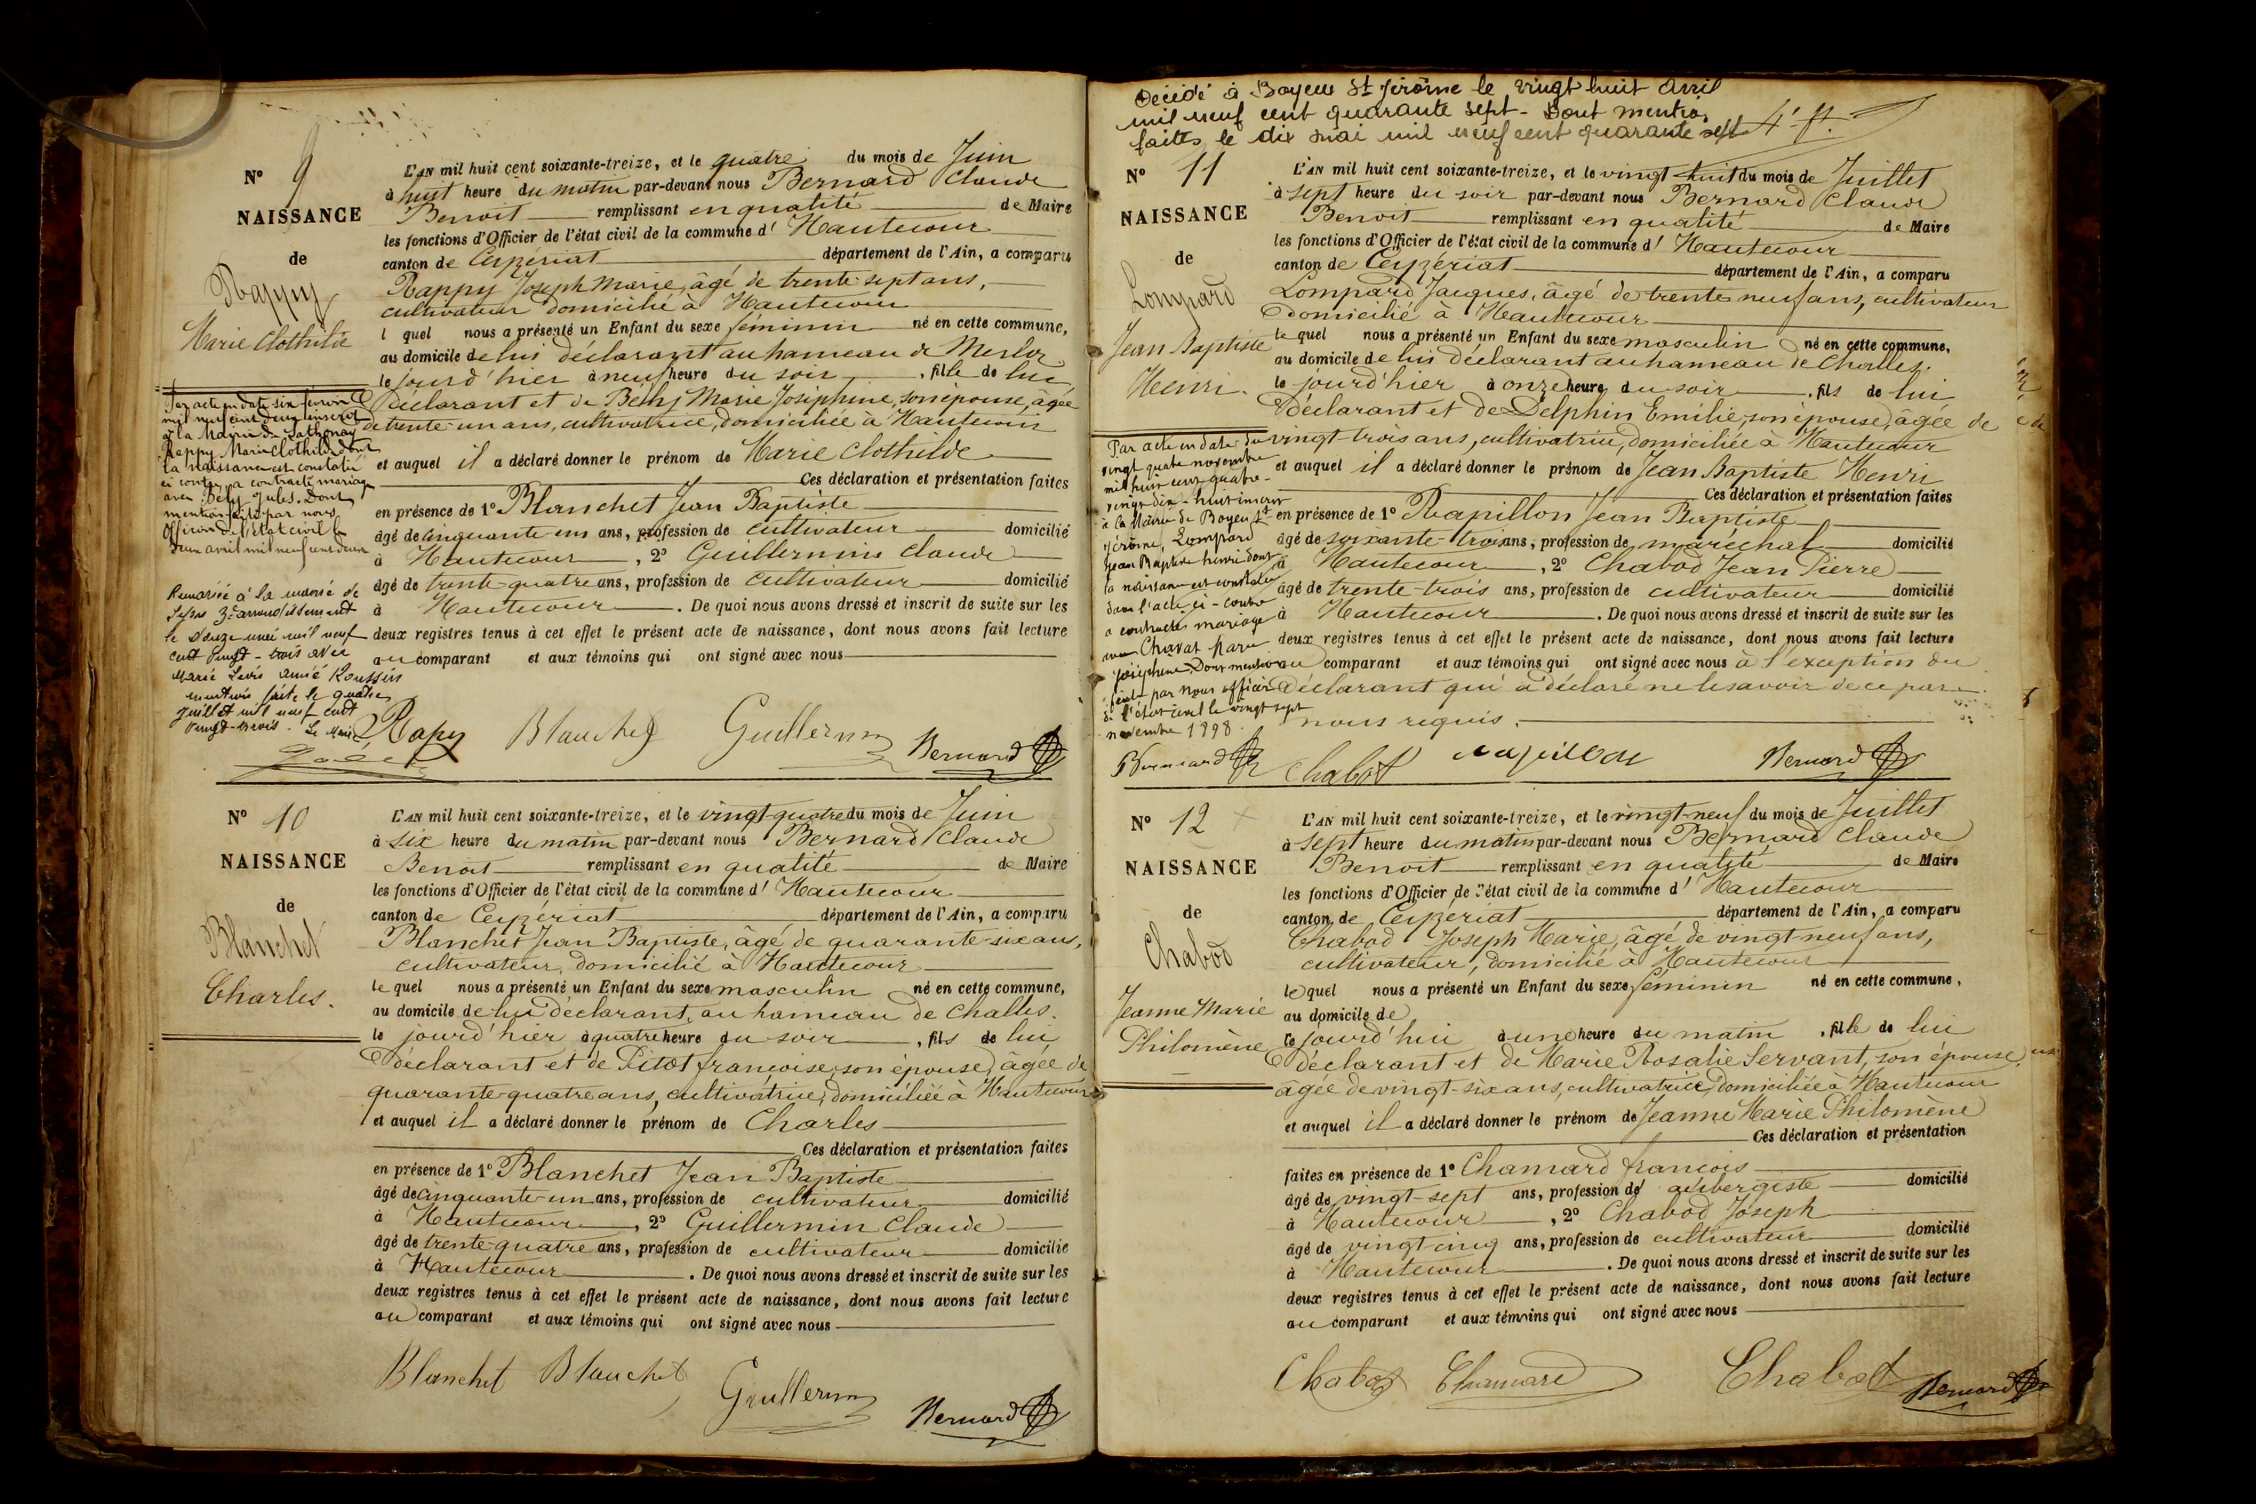 N° 9
NAISSANCE
de
Rappy
Marie Clothilde
L'AN mil huit cent soixante-treize, et le quatre du mois de Juin
à huit heure du matin par-devant nous Bernard Claude
Benoit remplissant en qualité de Maire
les fonctions d'Officier de l'état civil de la commune d' Hautecour
canton de Ceyzériat département de l'Ain, a comparu
Rappy Joseph Marie, âgé de trente sept ans,
cultivateur domicilié à Hautecour
l quel nous a présenté un Enfant du sexe féminin né en cette commune,
au domicile de lui déclarant au hameau de Merloz
le jourd'hier à neuf heure du soir, fille de lui
déclarant et de Bély Marie Joséphine, son épouse, âgée
de trente-un ans, cultivatrice, domiciliée à Hautecour
et auquel il a déclaré donner le prénom de Marie Clothilde
Ces déclaration et présentation faites
en présence de 1° Blanchet Jean Baptiste
âgé de cinquante un ans, profession de cultivateur domicilié
à Hautecour, 2° Guillermin Claude
âgé de trente-quatre ans, profession de cultivateur domicilié
à Hautecour. De quoi nous avons dressé et inscrit de suite sur les
deux registres tenus à cet effet le présent acte de naissance, dont nous avons fait lecture
au comparant et aux témoins qui ont signé avec nous
Par acte en date six février
mil neuf cent deux inscrit
à la Mairie de Sathonay
Rappy Marie Clothilde dont
la naissance est constatée
ci contre, a contracté mariage
avec Bély Jules. Dont
mention faite par nous
Officier de l'état civil le
deux avril mil neuf cent deux
Remariée à la mairie de
3e arrondissement
le douze mai mil neuf
cent vingt-trois avec
Marie Louis Aimé Roussin
mention faite le quatre
juillet mil neuf cent
vingt-trois. Le Maire,
Rapy Blanchet Guillermin Bernard
N° 10
NAISSANCE
de
Blanchet
Charles.
L'AN mil huit cent soixante-treize, et le vingt-quatre du mois de Juin
à six heure du matin par-devant nous Bernard Claude
Benoit remplissant en qualité de Maire
les fonctions d'Officier de l'état civil de la commune d' Hautecour
canton de Ceyzériat département de l'Ain, a comparu
Blanchet Jean Baptiste, âgé de quarante-six ans,
cultivateur, domicilié à Hautecour
le quel nous a présenté un Enfant du sexe masculin né en cette commune,
au domicile de lui déclarant, au hameau de Challes.
le jourd'hier à quatre heure du soir, fils de lui
déclarant et de Pitot françoise, son épouse, âgée de
quarante-quatre ans, cultivatrice, domiciliée à Hautecour
et auquel il a déclaré donner le prénom de Charles
Ces déclaration et présentation faites
en présence de 1° Blanchet Jean Baptiste
âgé de cinquante-un ans, profession de cultivateur domicilié
à Hautecour, 2° Guillermin Claude
âgé de trente-quatre ans, profession de cultivateur domicilié
à Hautecour. De quoi nous avons dressé et inscrit de suite sur les
deux registres tenus à cet effet le présent acte de naissance, dont nous avons fait lecture
au comparant et aux témoins qui ont signé avec nous
Blanchet Blanchet Guillermin Bernard
Décédé à Boyeux St Jérôme le vingt huit avril
mil neuf cent quarante sept - Dont mention
faite, le dix mai mil neuf cent quarante sept
N° 11
NAISSANCE
de
Lompard
Jean Baptiste
Henri.
L'AN mil huit cent soixante-treize, et le vingt huit du mois de Juillet
à sept heure du soir par-devant nous Bernard Claude
Benoit remplissant en qualité de Maire
les fonctions d'Officier de l'état civil de la commune d' Hautecour
canton de Ceyzériat département de l'Ain, a comparu
Lompard Jacques, âgé de trente neuf ans, cultivateur
domicilié à Hautecour
le quel nous a présenté un Enfant du sexe masculin né en cette commune,
au domicile de lui déclarant au hameau de Challes.
le jourd'hier à onze heure du soir, fils de lui
déclarant et de Delphin Emélie, son épouse, âgée de
vingt trois ans, cultivatrice, domiciliée à Hautecour
et auquel il a déclaré donner le prénom de Jean Baptiste Henri
Ces déclaration et présentation faites
en présence de 1° Rapillon Jean Baptiste
âgé de soixante-trois ans, profession de maréchal domicilié
à Hautecour, 2° Chabod Jean Pierre
âgé de trente-trois ans, profession de cultivateur domicilié
à Hautecour. De quoi nous avons dressé et inscrit de suite sur les
deux registres tenus à cet effet le présent acte de naissance, dont nous avons fait lecture
au comparant et aux témoins qui ont signé avec nous à l'exception du
déclarant qui a déclaré ne le savoir de ce par
nous requis.
Par acte en date du
vingt quatre novembre
mil huit cent quatre-
vingt dix-huit inscrit
à la Mairie de Boyeux St
Jérôme, Lompard
Jean Baptiste Henri dont
la naissance est constatée
dans l'acte ci-contre
a contracté mariage
avec Chavat Marie
Joséphine. Dont mention
faite par nous officier
de l'état civil le vingt sept
novembre 1898.
Bernard Chabot rapillon Bernard
N° 12
NAISSANCE
de
Chabod
Jeanne Marie
Philomène
L'AN mil huit cent soixante-treize, et le vingt-neuf du mois de Juillet
à sept heure du matin par-devant nous Bernard Claude
Benoit remplissant en qualité de Maire
les fonctions d'Officier de l'état civil de la commune d' Hautecour
canton de Ceyzériat département de l'Ain, a comparu
Chabod Joseph Marie, âgé de vingt-neuf ans,
cultivateur, domicilié à Hautecour
le quel nous a présenté un Enfant du sexe féminin né en cette commune,
au domicile de
ce jourd'hui à une heure du matin, fille de lui
déclarant et de Marie Rosalie Servant, son épouse
âgée de vingt-six ans, cultivatrice, domiciliée à Hautecour
et auquel il a déclaré donner le prénom de Jeanne Marie Philomène
Ces déclaration et présentation
faites en présence de 1° Chamard françois
âgé de vingt-sept ans, profession de aubergiste domicilié
à Hautecour, 2° Chabod Joseph
âgé de vingt cinq ans, profession de cultivateur domicilié
à Hautecour. De quoi nous avons dressé et inscrit de suite sur les
deux registres tenus à cet effet le présent acte de naissance, dont nous avons fait lecture
au comparant et aux témoins qui ont signé avec nous
Chabod Chamard Chabod Bernard